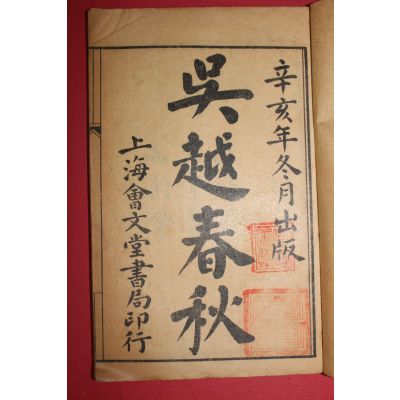 辛亥年冬月出版
吳越春秋
上海會文堂書局印行